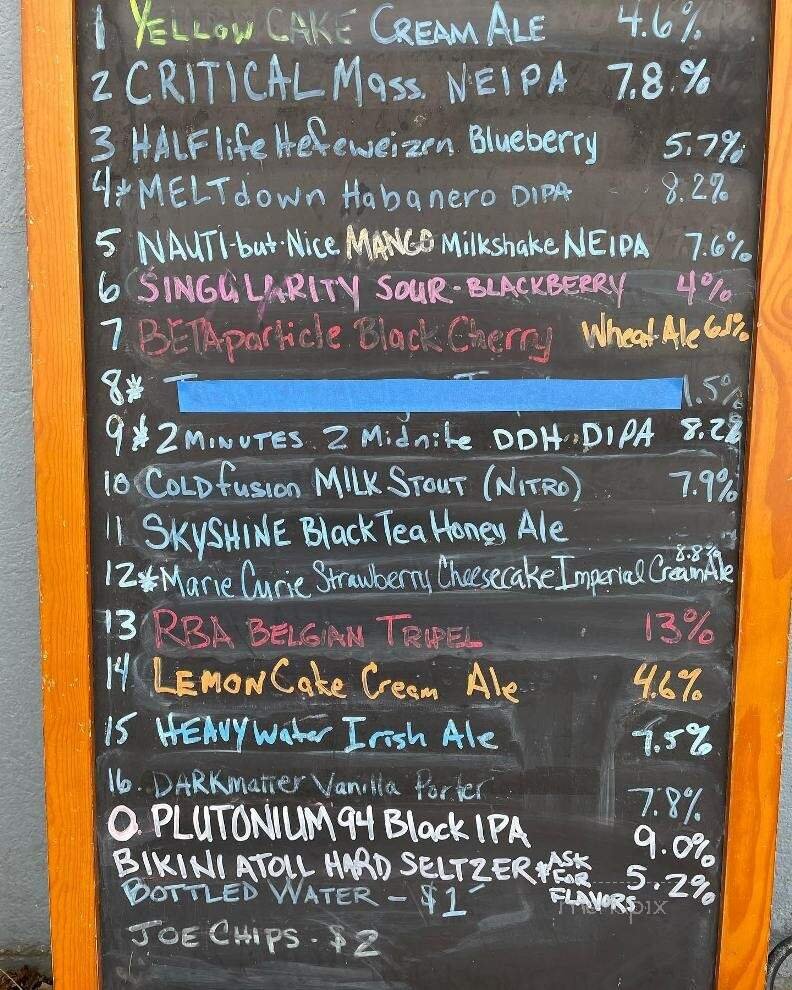 1 YELLOW CAKE CREAM ALE 4.6%
2 CRITICAL Mass. NEIPA 7.8.%
3 HALFlife Hefeweizen Blueberry 5.7%
4* MELTdown Habanero DIPA 8.2%
5 NAUTI-but-Nice MANGO Milkshake NEIPA 7.6%
6 SINGULARITY SOUR-BLACKBERRY 4%
7 BETAparticle Black Cherry Wheat Ale 6.5%
8* .5%
9* 2 MINUTES 2 Midnite DDH DIPA 8.2%
10 COLDfusion MILK STOUT (NITRO) 7.9%
11 SKYSHINE Black Tea Honey Ale
8.8%
12* Marie Curie Strawberry Cheesecake Imperial Cream Ale
13 RBA BELGIAN TRIPEL 13%
14 LEMON Cake Cream Ale 4.6%
15 HEAVY Water Irish Ale 7.5%
16 DARKmatter Vanilla Porter 7.8%
0. PLUTONIUM 94 Black IPA 9.0%
BIKINI ATOLL HARD SELTZER *ASK FOR FLAVORS 5.2%
BOTTLED WATER - $1
JOE CHIPS - $2